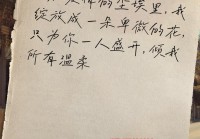 的尘埃里，我
绽放成一朵卑微的花，
只为你一人盛开，倾我
所有温柔